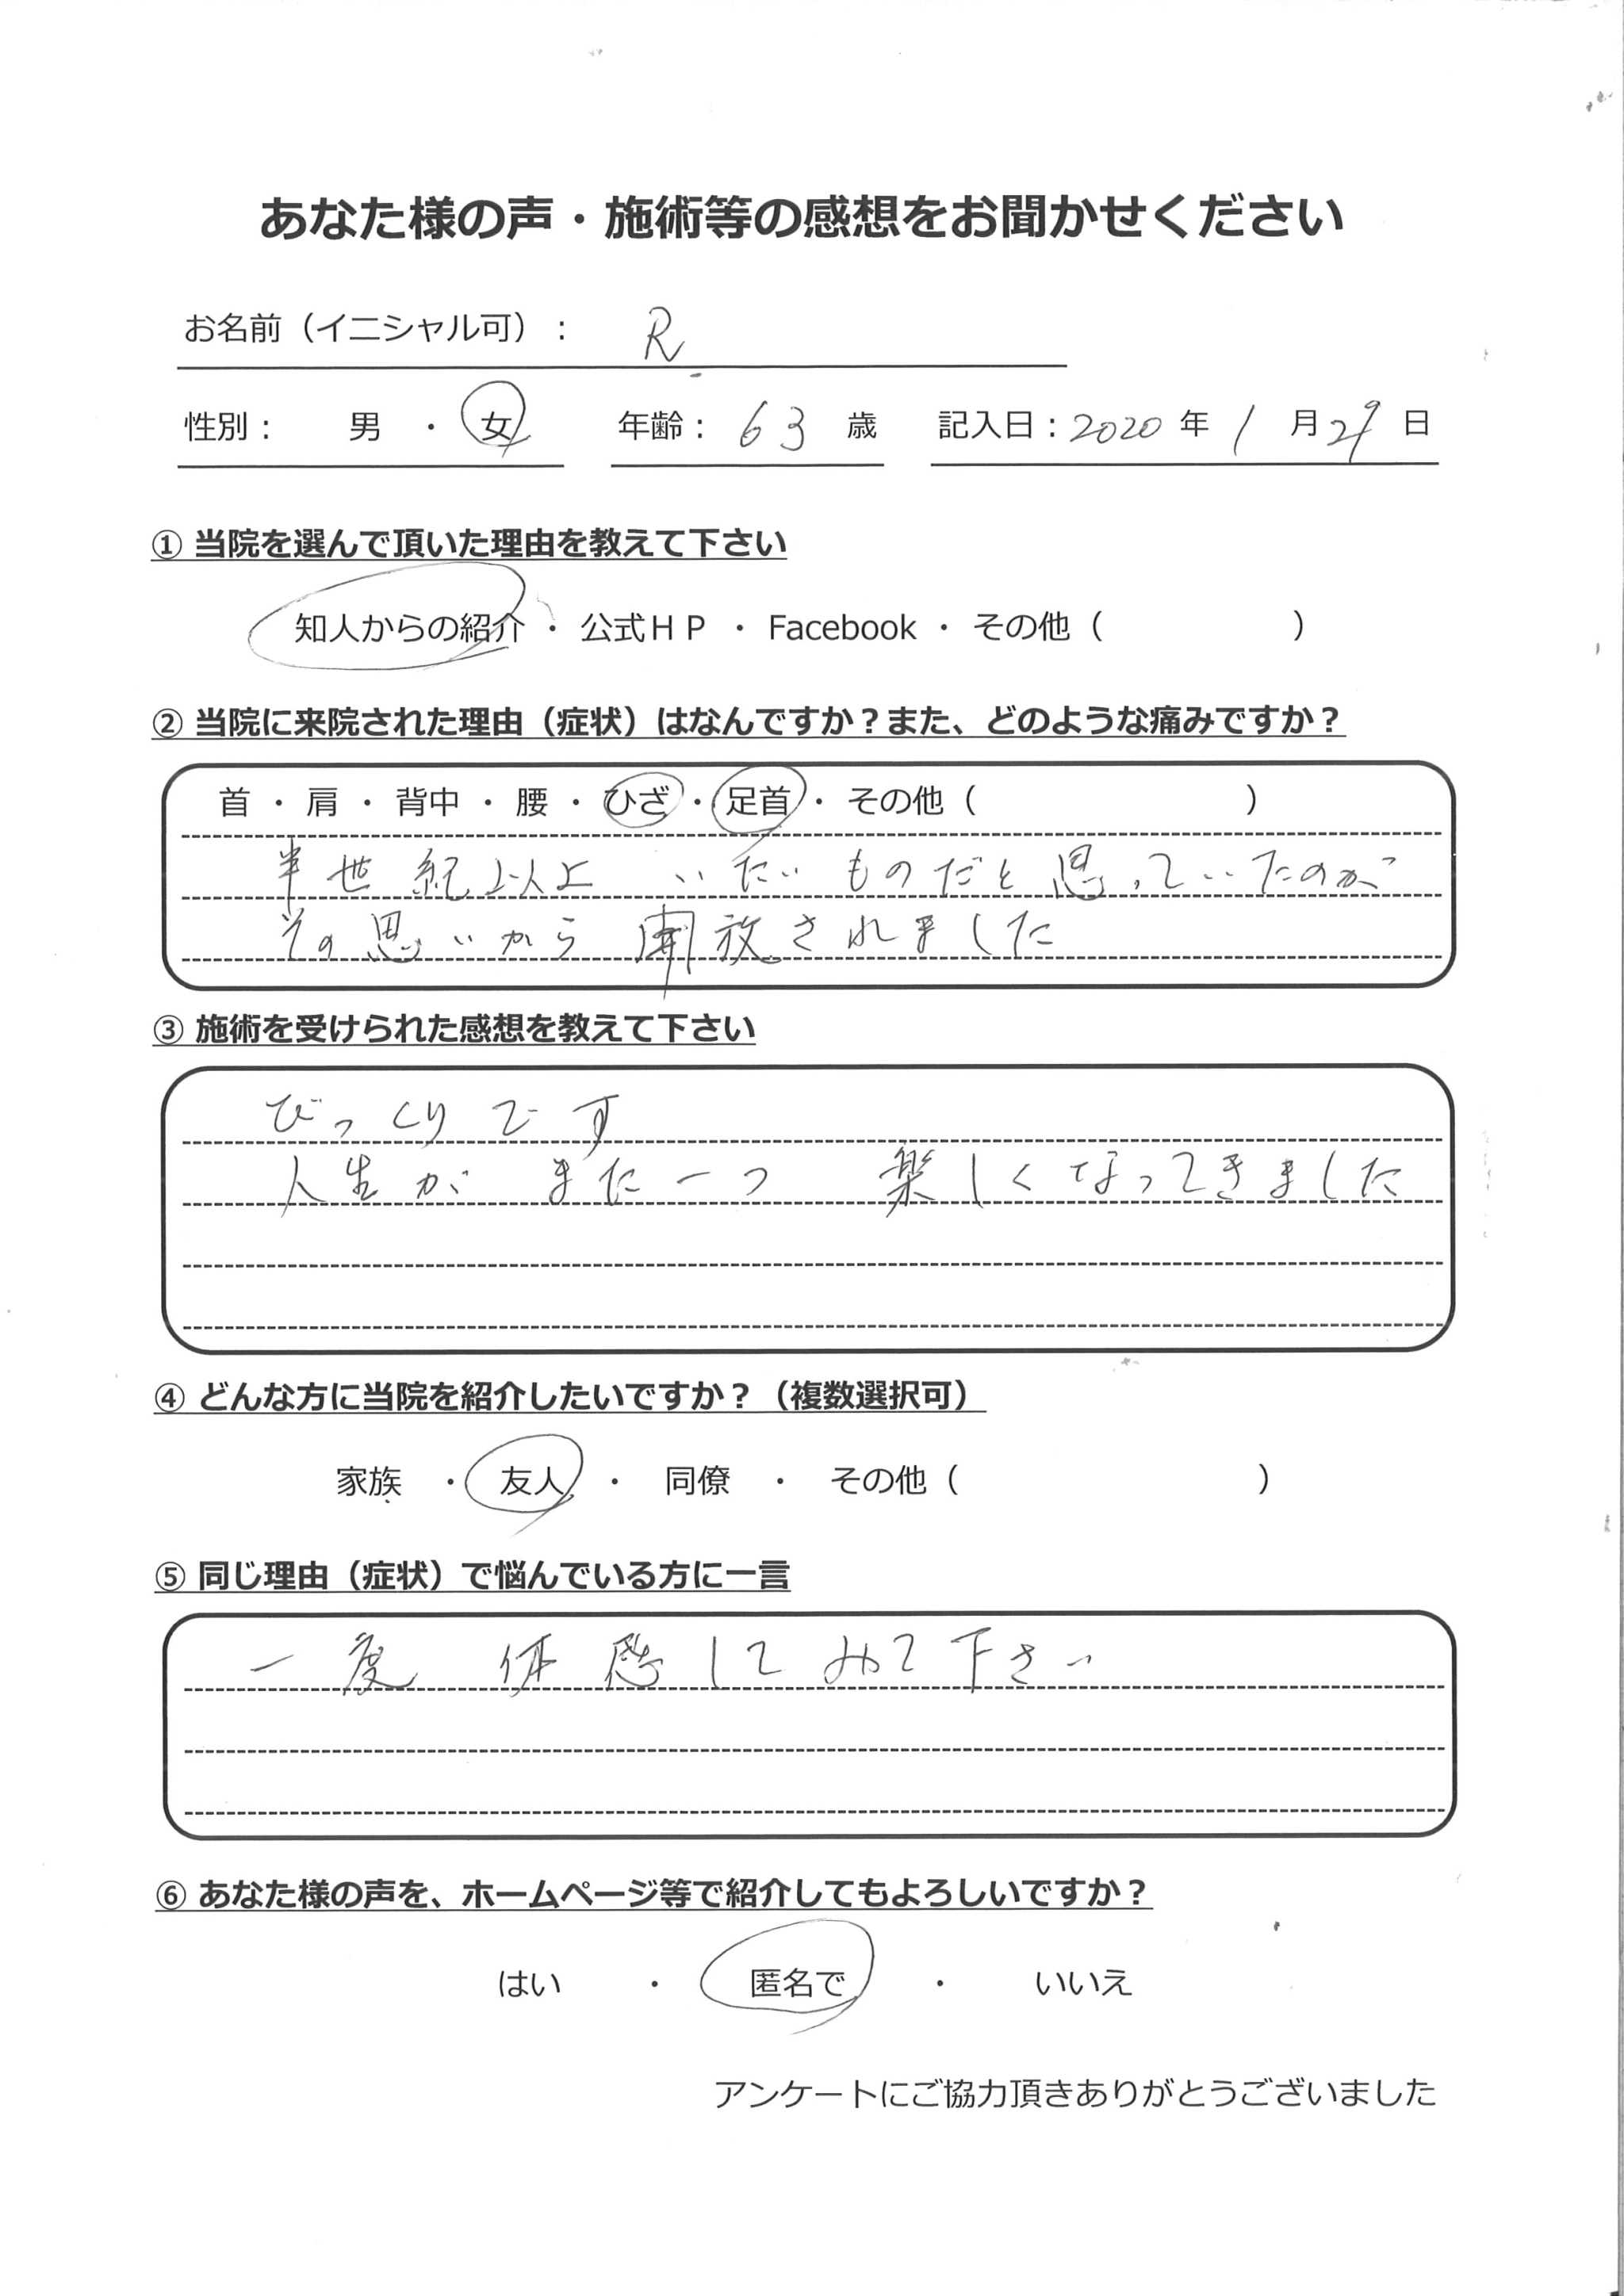 あなた様の声・施術等の感想をお聞かせください
お名前（イニシャル可）： R
性別： 男 ・ 女 年齢： 63 歳 記入日：2020 年 1 月 29 日
① 当院を選んで頂いた理由を教えて下さい
知人からの紹介 ・ 公式ＨＰ ・ Facebook ・ その他（ ）
② 当院に来院された理由（症状）はなんですか？また、どのような痛みですか？
首 ・ 肩 ・ 背中 ・ 腰 ・ ひざ ・ 足首 ・ その他（ ）
半世紀以上 いたいものだと思っていたのが
その思いから 開放されました
③ 施術を受けられた感想を教えて下さい
びっくりです
人生が また一つ 楽しくなってきました
④ どんな方に当院を紹介したいですか？（複数選択可）
家族 ・ 友人 ・ 同僚 ・ その他（ ）
⑤ 同じ理由（症状）で悩んでいる方に一言
一度 体感してみて下さい
⑥ あなた様の声を、ホームページ等で紹介してもよろしいですか？
はい ・ 匿名で ・ いいえ
アンケートにご協力頂きありがとうございました